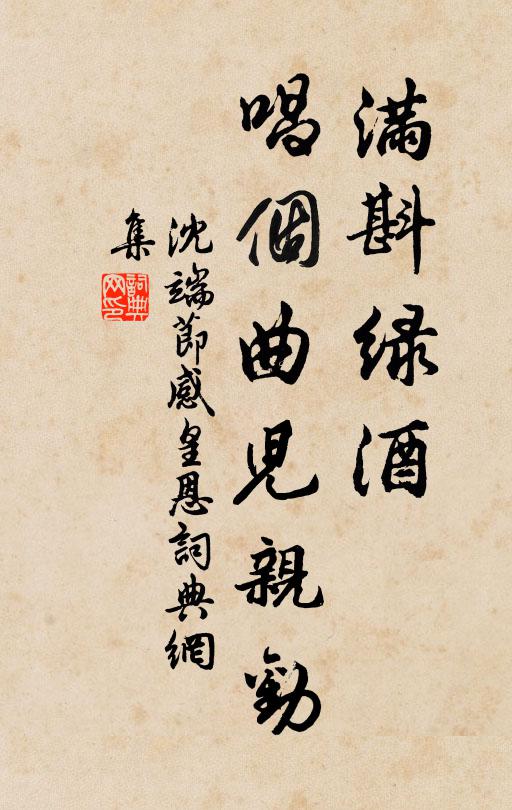 滿斟綠酒
唱個曲兒親勸
沈端節感皇恩詞典網
集
詞典
网印